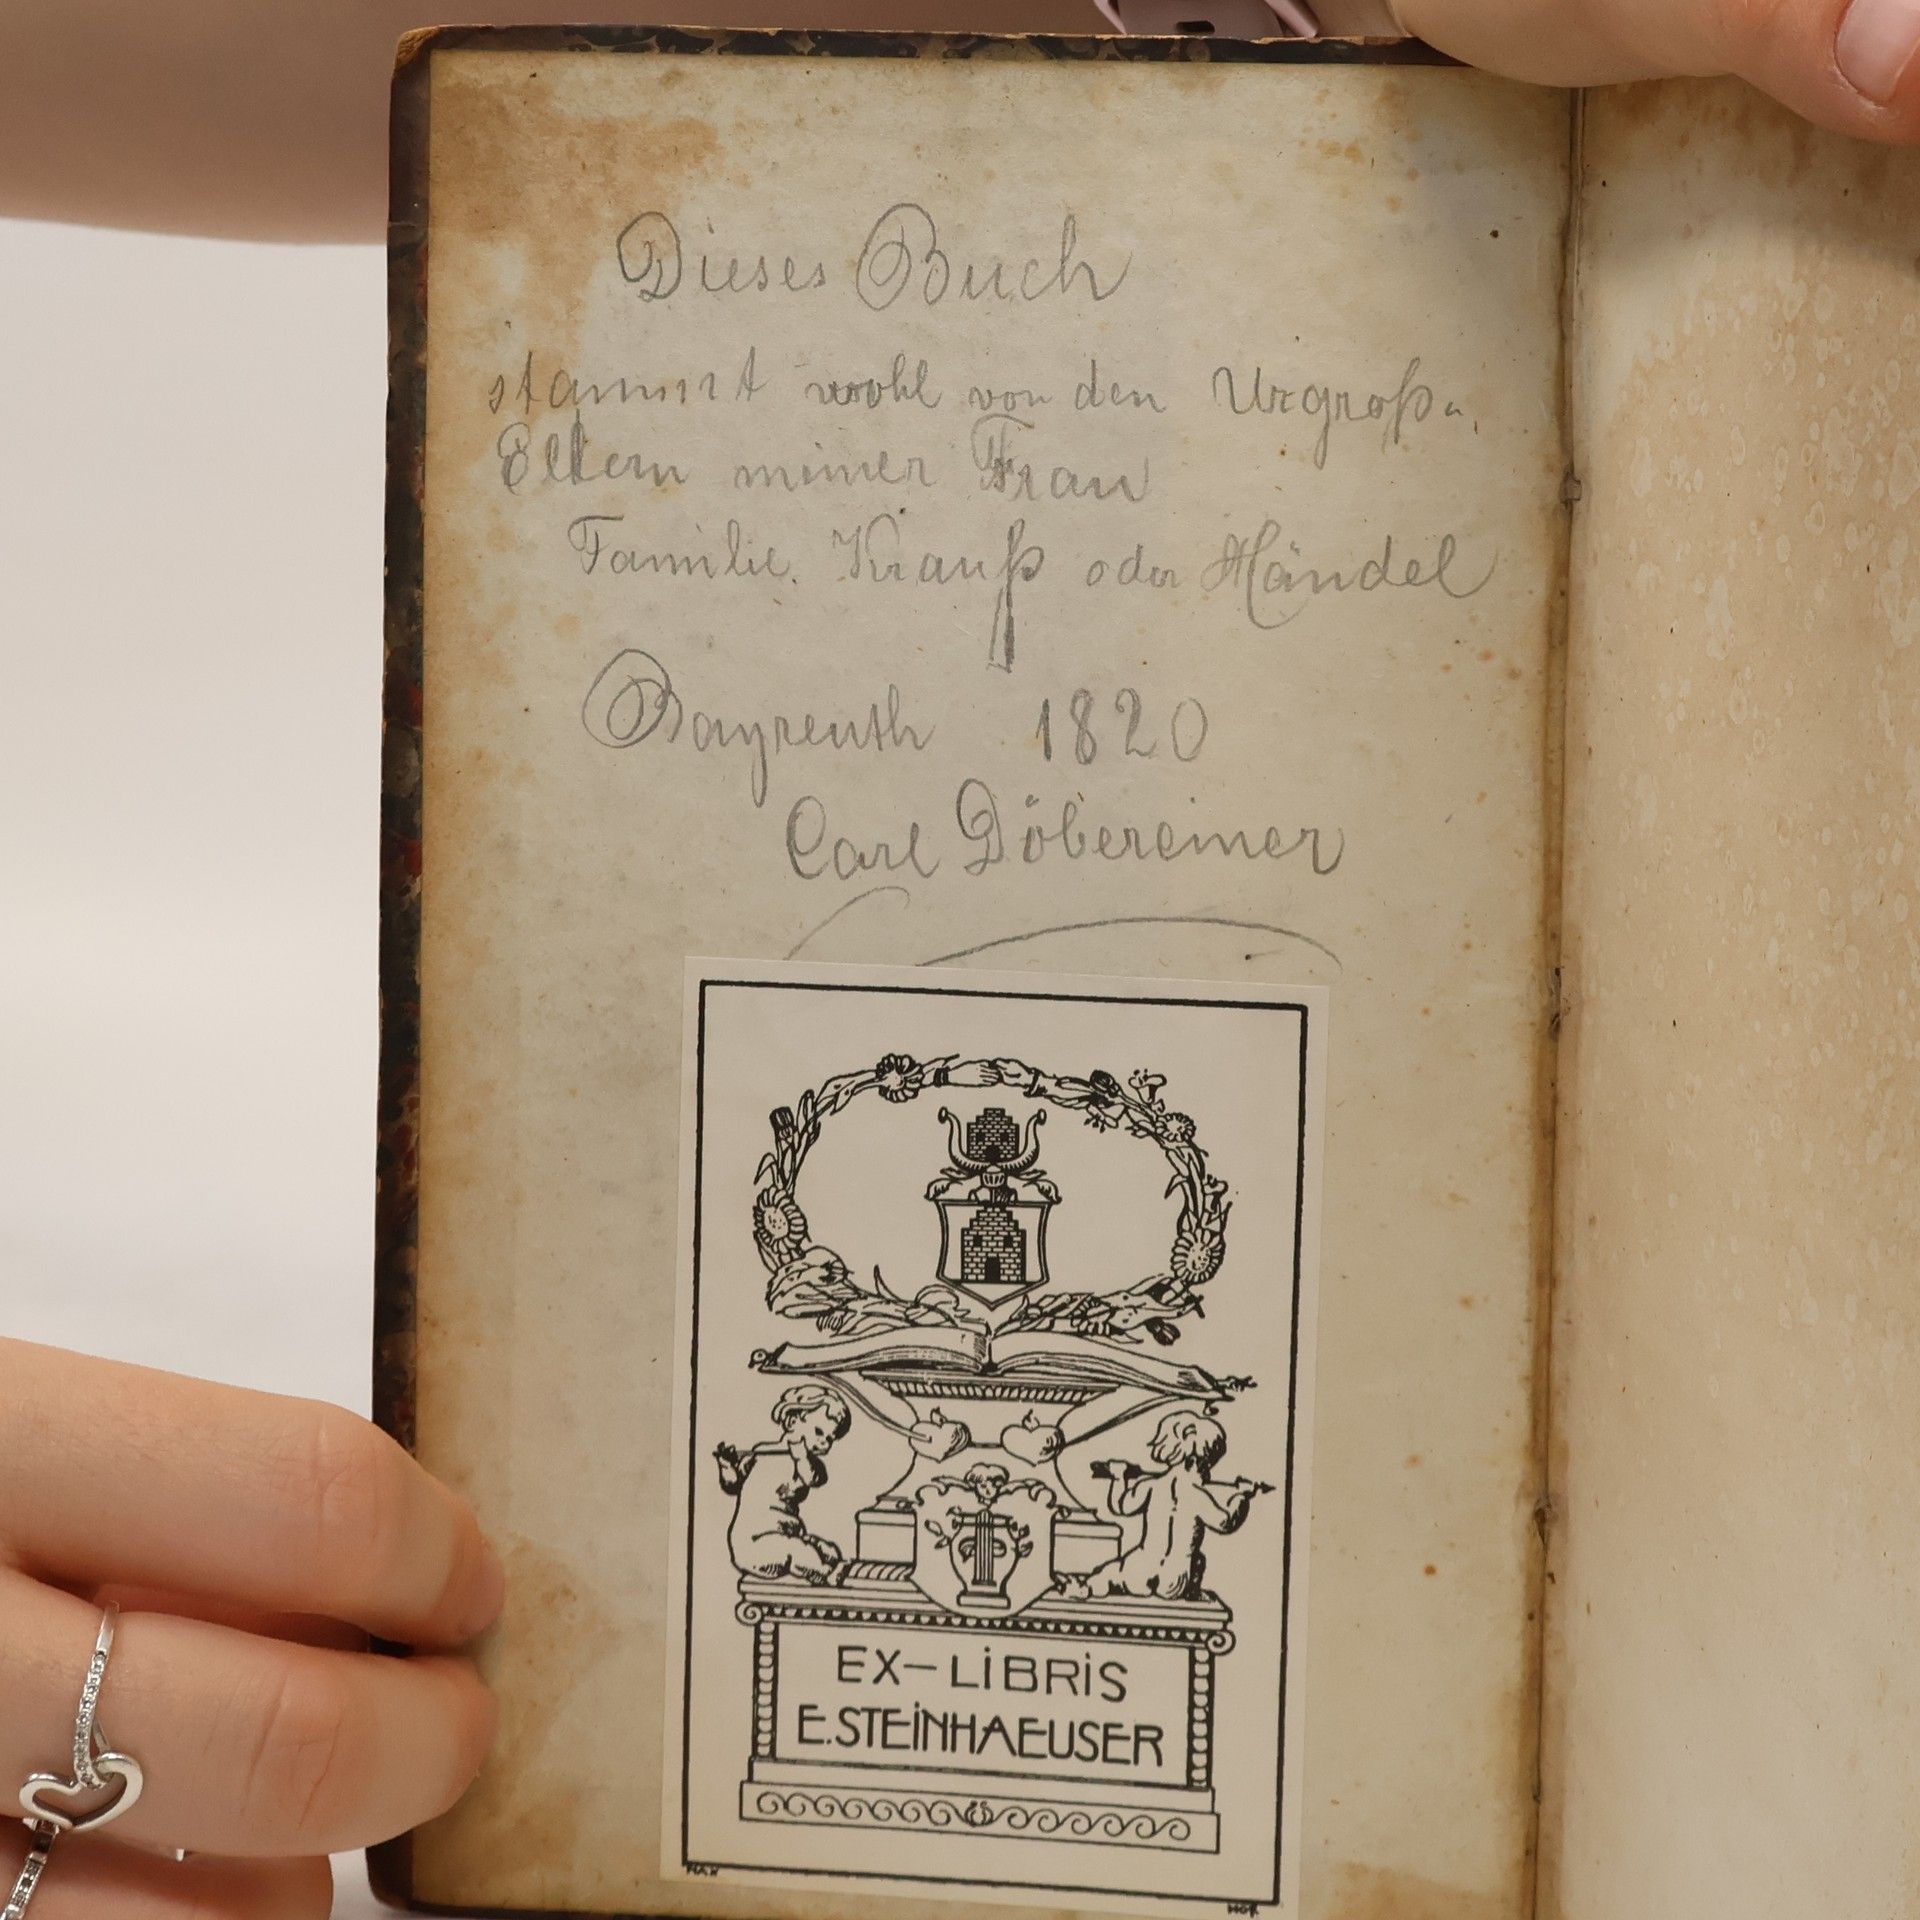 Dieses Buch
stammt wohl von den Urgroß-
Eltern meiner Frau
Familie. Krauß oder Händel
Bayreuth 1820
Carl Döbereiner
EX-LiBRiS
E.STEiNHAEUSER
MAX